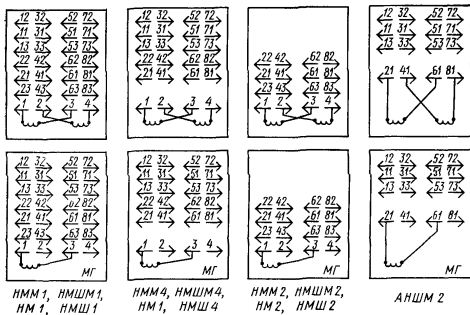 12 32 52 72
11 31 51 71
13 33 53 73
22 42 62 82
21 41 61 81
23 43 63 83
1 2 3 4
12 32 52 72
11 31 51 71
13 33 53 73
22 42 62 82
21 41 61 81
1 2 3 4
22 42 62 82
21 41 61 81
23 43 63 83
1 2 3 4
12 32 52 72
11 31 51 71
13 33 53 73
21 41 61 81
12 32 52 72
11 31 51 71
13 33 53 73
22 42 62 82
21 41 61 81
23 43 63 83
1 2 3 4
МГ
12 32 52 72
11 31 51 71
13 33 53 73
22 42 62 82
21 41 61 81
1 2 3 4
МГ
22 42 62 82
21 41 61 81
23 43 63 83
1 2 3 4
МГ
12 32 52 72
11 31 51 71
13 33 53 73
21 41 61 81
МГ
НММ 1, НМШМ 1,
НМ 1, НМШ 1
НММ 4, НМШМ 4,
НМ 1, НМШ 4
НММ 2, НМШМ 2,
НМ 2, НМШ 2
АНШМ 2